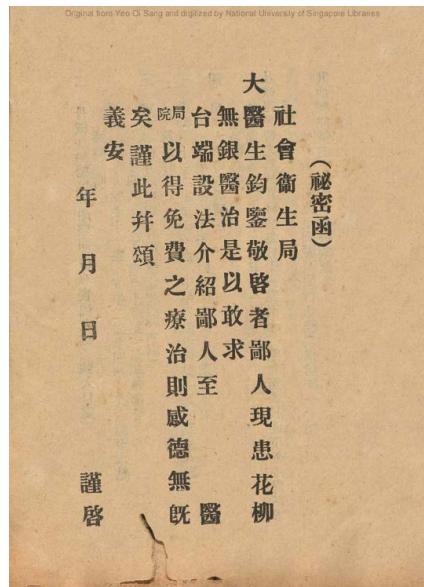 Original from Yeo Oi Sang and digitized by National University of Singapore Libraries
（祕密函）
社會衞生局
大醫生鈞鑒敬啓者鄙人現患花柳
無銀醫治是以敢求
台端設法介紹鄙人至　醫
局院以得免費之療治則感德無旣
矣謹此幷頌
義安
年　月　日　謹啓